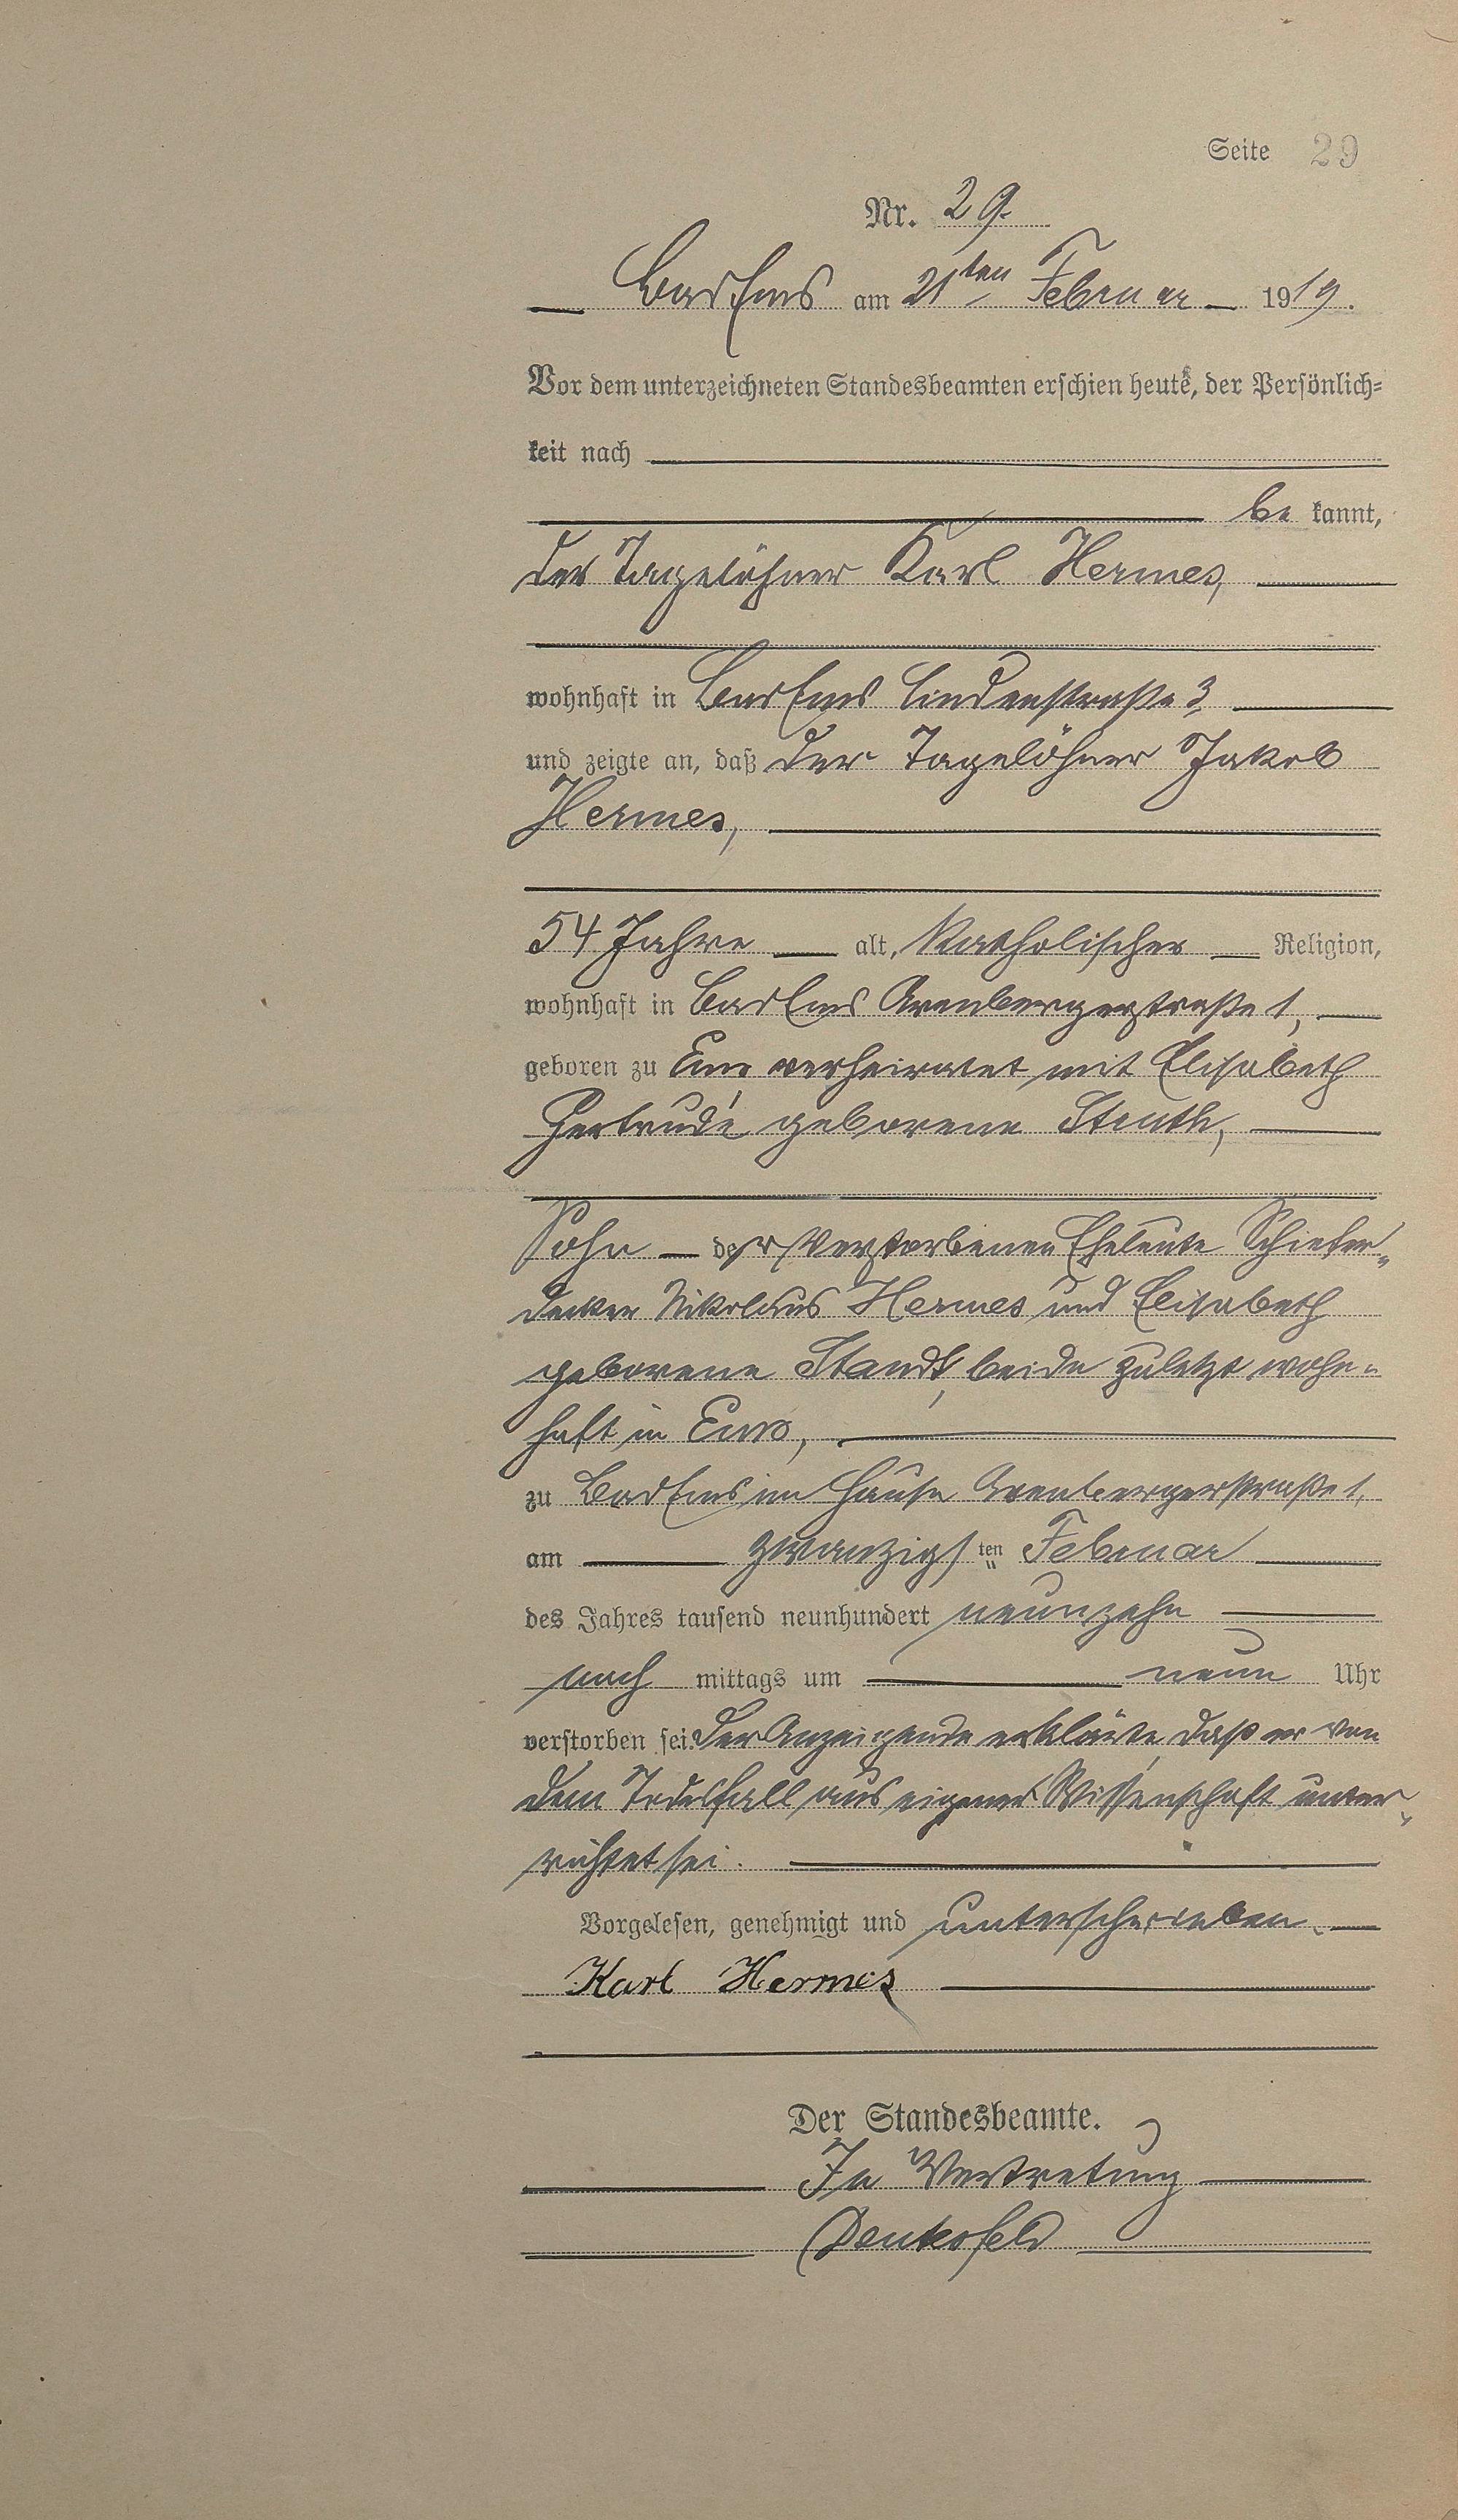 Seite 29
Nr. 29.
Bad Ems am 21ten Februar 1919.
Vor dem unterzeichneten Standesbeamten erschien heute, der Persönlich=
keit nach
be kannt,
der Tagelöhner Karl Hermes,
wohnhaft in Bad Ems Lindenstraße 3,
und zeigte an, daß der Tagelöhner Jakob
Hermes,
54 Jahre alt, katholischer Religion,
wohnhaft in Bad Ems Arenbergerstraße 1,
geboren zu Ems, verheiratet mit Elisabeth
Gertrude geborene Stuth,
Sohn der verstorbenen Eheleute Schiefer„
decker Nikolaus Hermes und Elisabeth
geborene Standt, beide zuletzt wohn„
haft in Ems,
zu Bad Ems im Hause Arenbergerstraße 1,
am zwanzigsten Februar
des Jahres tausend neunhundert neunzehn
nach mittags um neun Uhr
verstorben sei. Der Anzeigende erklärte, daß er von
dem Todesfall aus eigener Wissenschaft unter„
richtet sei.
Vorgelesen, genehmigt und unterschrieben.
Karl Hermes
Der Standesbeamte.
In Vertretung